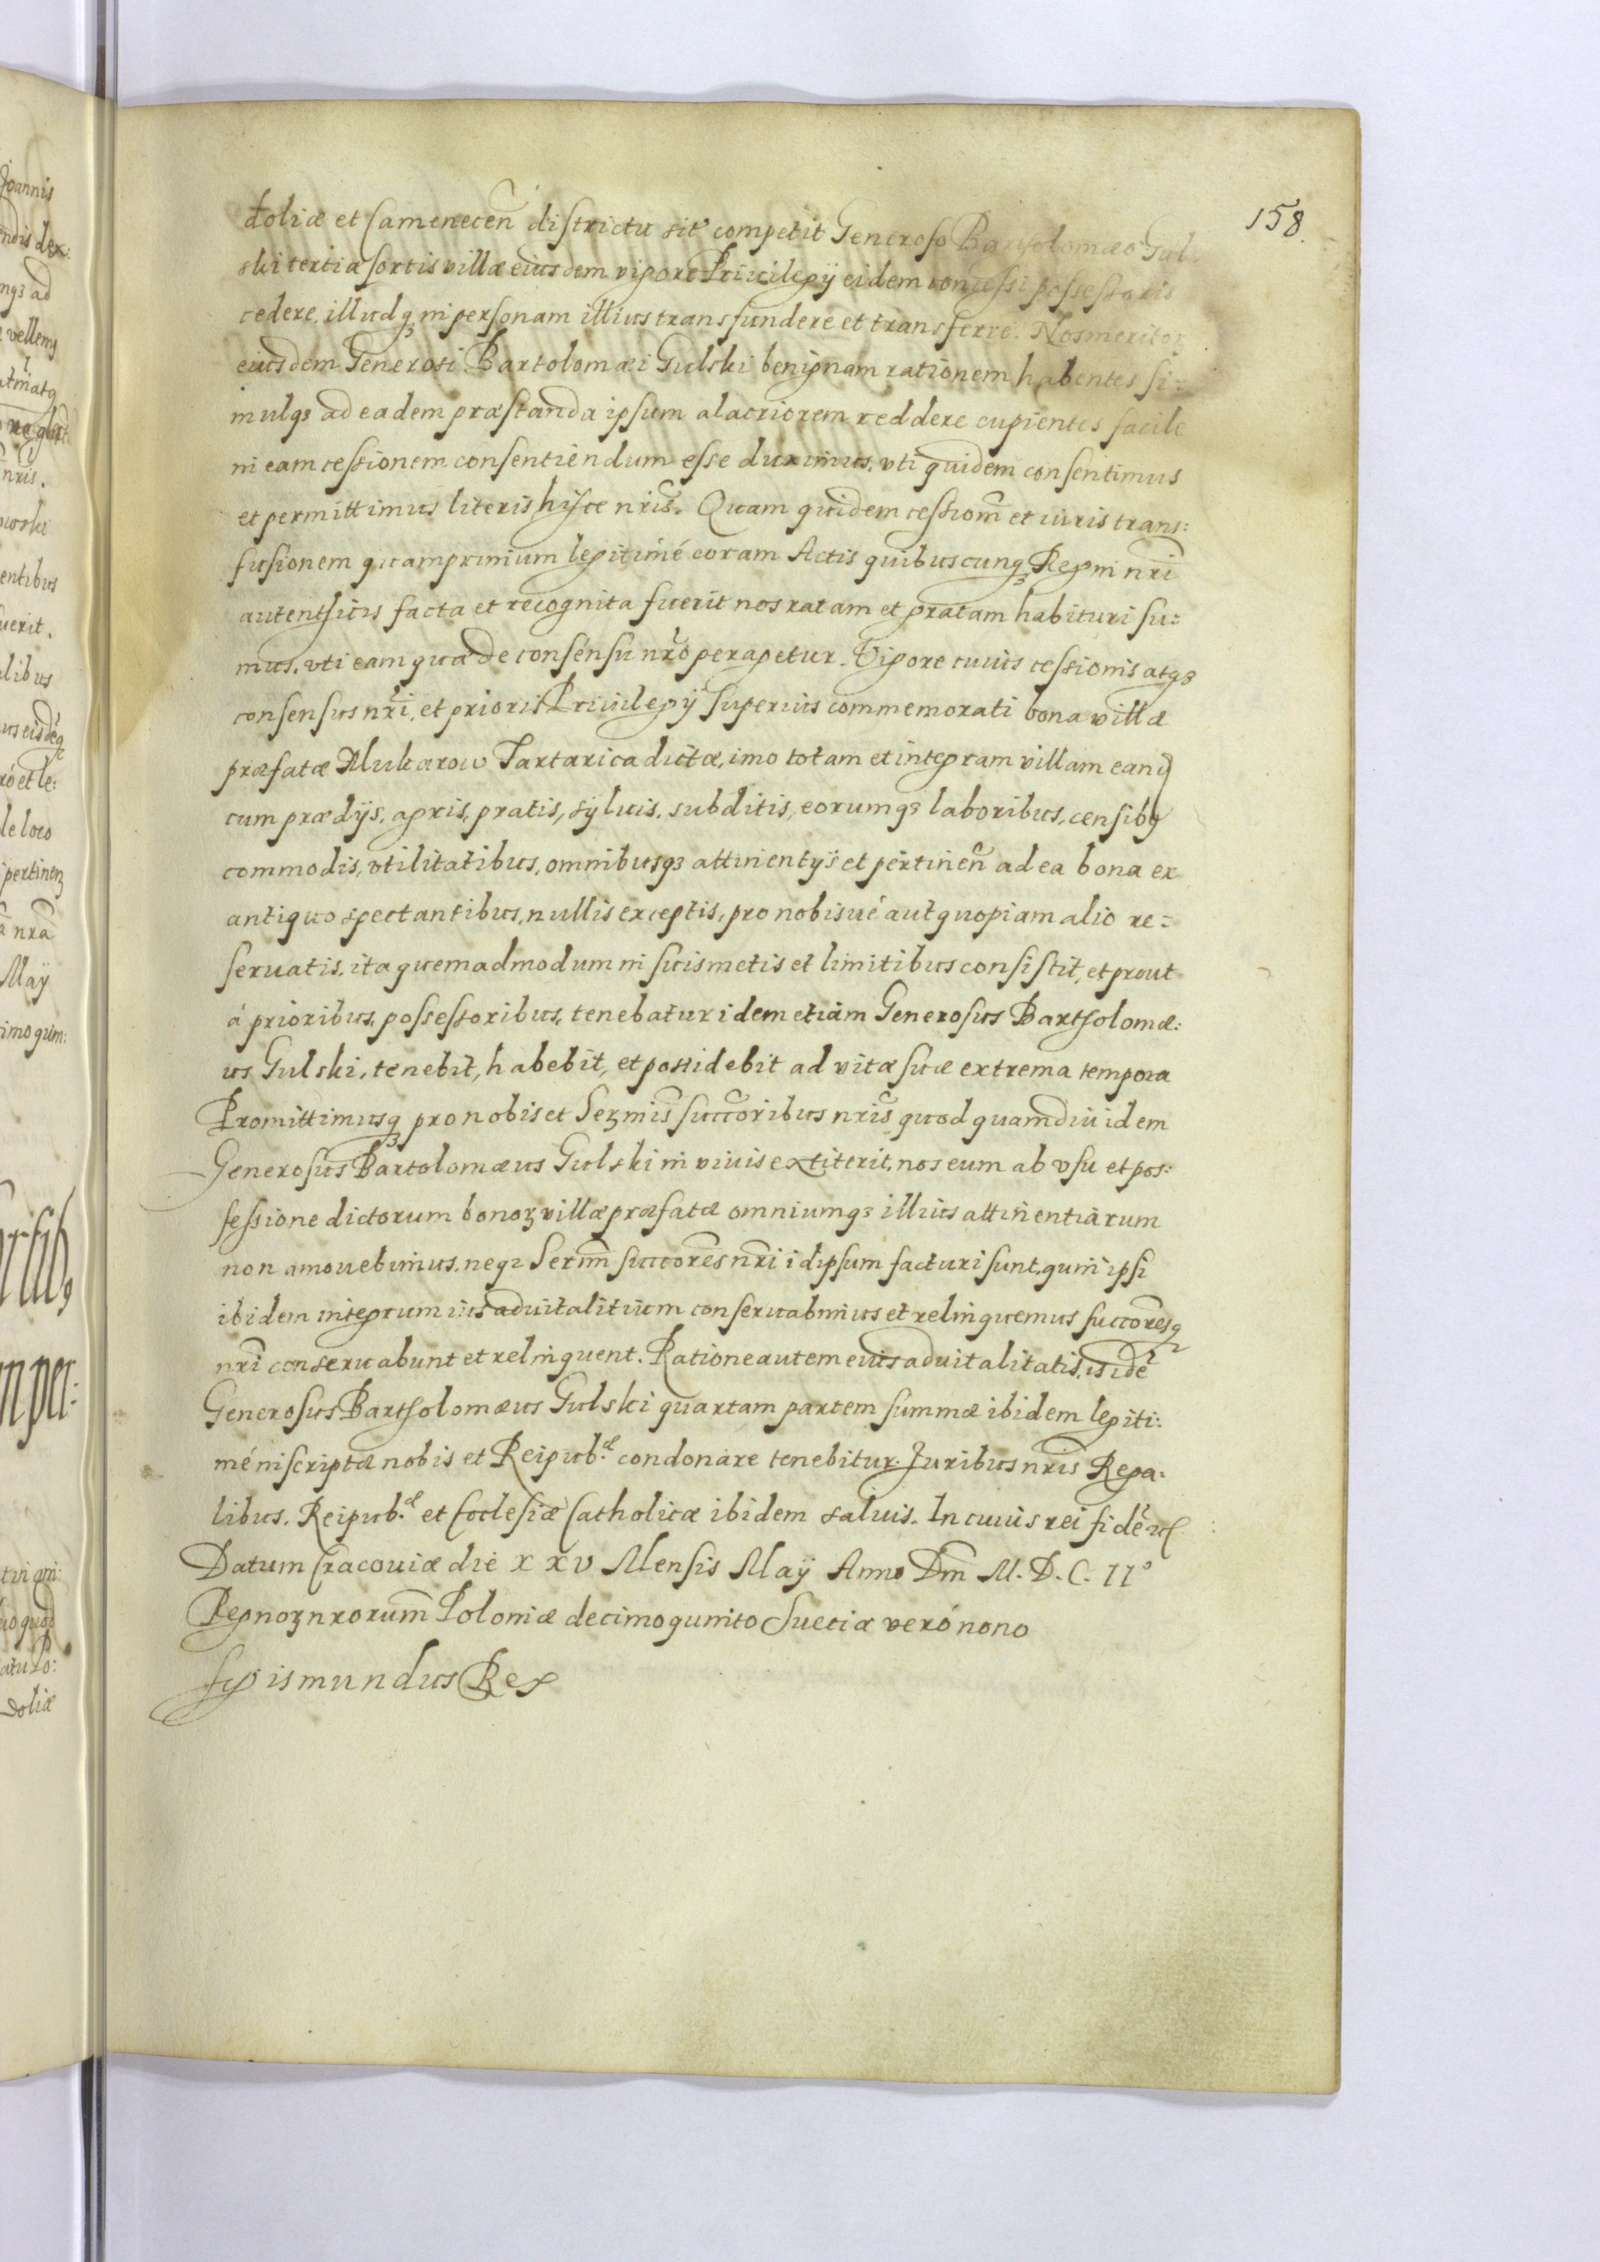 158.
doliæ et Camenecen̄ districtu sit̃ competit Generoso Bartholomæo Gul
ski tertiæ sortis villæ eiusdem vigore Priuilegÿ eidem concessi possessoris
cedere, illudq₃ in personam illius transfundere et transferre. Nos meritoꝝ
eiusdem Generosi Bartolomæi Gulski benignam rationem habentes si:
mulq₃ ad eadem præstanda ipsum alacriorem reddere cupientes facile
in eam cessionem consentiendum esse duximus, vti quidem consentimus
et permittimus literis hisce nr̃is. Quam quidem cessiom̃ et iuris trans:
fusionem quamprimum legitimé coram Actis quibuscunq₃ Regni nr̃i
autenthicis facta et recognita fuerit nos ratam et gratam habituri su:
mus, vti eam quæ de consensu nr̃o peragetur. Vigore cuius cessionis atq₃
consensus nr̃i, et prioris Priuilegÿ superius commemorati bona villæ
præfatæ Mukarow Tartarica dictæ, imo totam et integram villam eand̃
cum prædÿs, agris, pratis, syluis, subditis, eorumq₃ laboribus, censibꝯ
commodis, vtilitatibus, omnibusq₃ attinentÿs et pertinen̄ ad ea bona ex
antiquo spectantibus, nullis exceptis, pro nobisué aut quopiam alio re:
seruatis, ita quemadmodum in suis metis et limitibus consistit, et prout
á prioribus, possessoribus, tenebatur idem etiam Generosus Bartholomæ:
us Gulski, tenebit, habebit, et possidebit ad vitæ suæ extrema tempora
Promittimusq₃ pro nobis et Serm̃is succ̃oribus nr̃is quod quamdiu idem
Generosus Bartolomæus Gulski in viuis extiterit, nos eum ab vsu et pos:
sessione dictorum bonoꝝ villæ præfatæ omniumq₃ illius attinentiarum
non amouebimus, neq₃ Serm̃i succ̃ores nr̃i id ipsum facturi sunt, quin ipsi
ibidem integrum ius aduitalitium conseruabimus et relinquemus succ̃oresq₃
nr̃i conseruabunt et relinquent. Ratione autem eius aduitalitatis, is idẽ
Generosus Bartholomæus Gulski quartam partem summæ ibidem legiti:
mé inscriptæ nobis et Reipub.æ condonare tenebitur. Juribus nr̃is Rega:
libus, Reipub.æ et Ecclesiæ Catholicæ ibidem saluis. In cuius rei fidẽ ꝛc̃
Datum Cracouiæ die XXV Mensis Maÿ Anno Dñi M.D.C.IIº
Regnoꝝ nrorum̃ Poloniæ decimoquinto Sueciæ veró nono
Sigismundus Rex